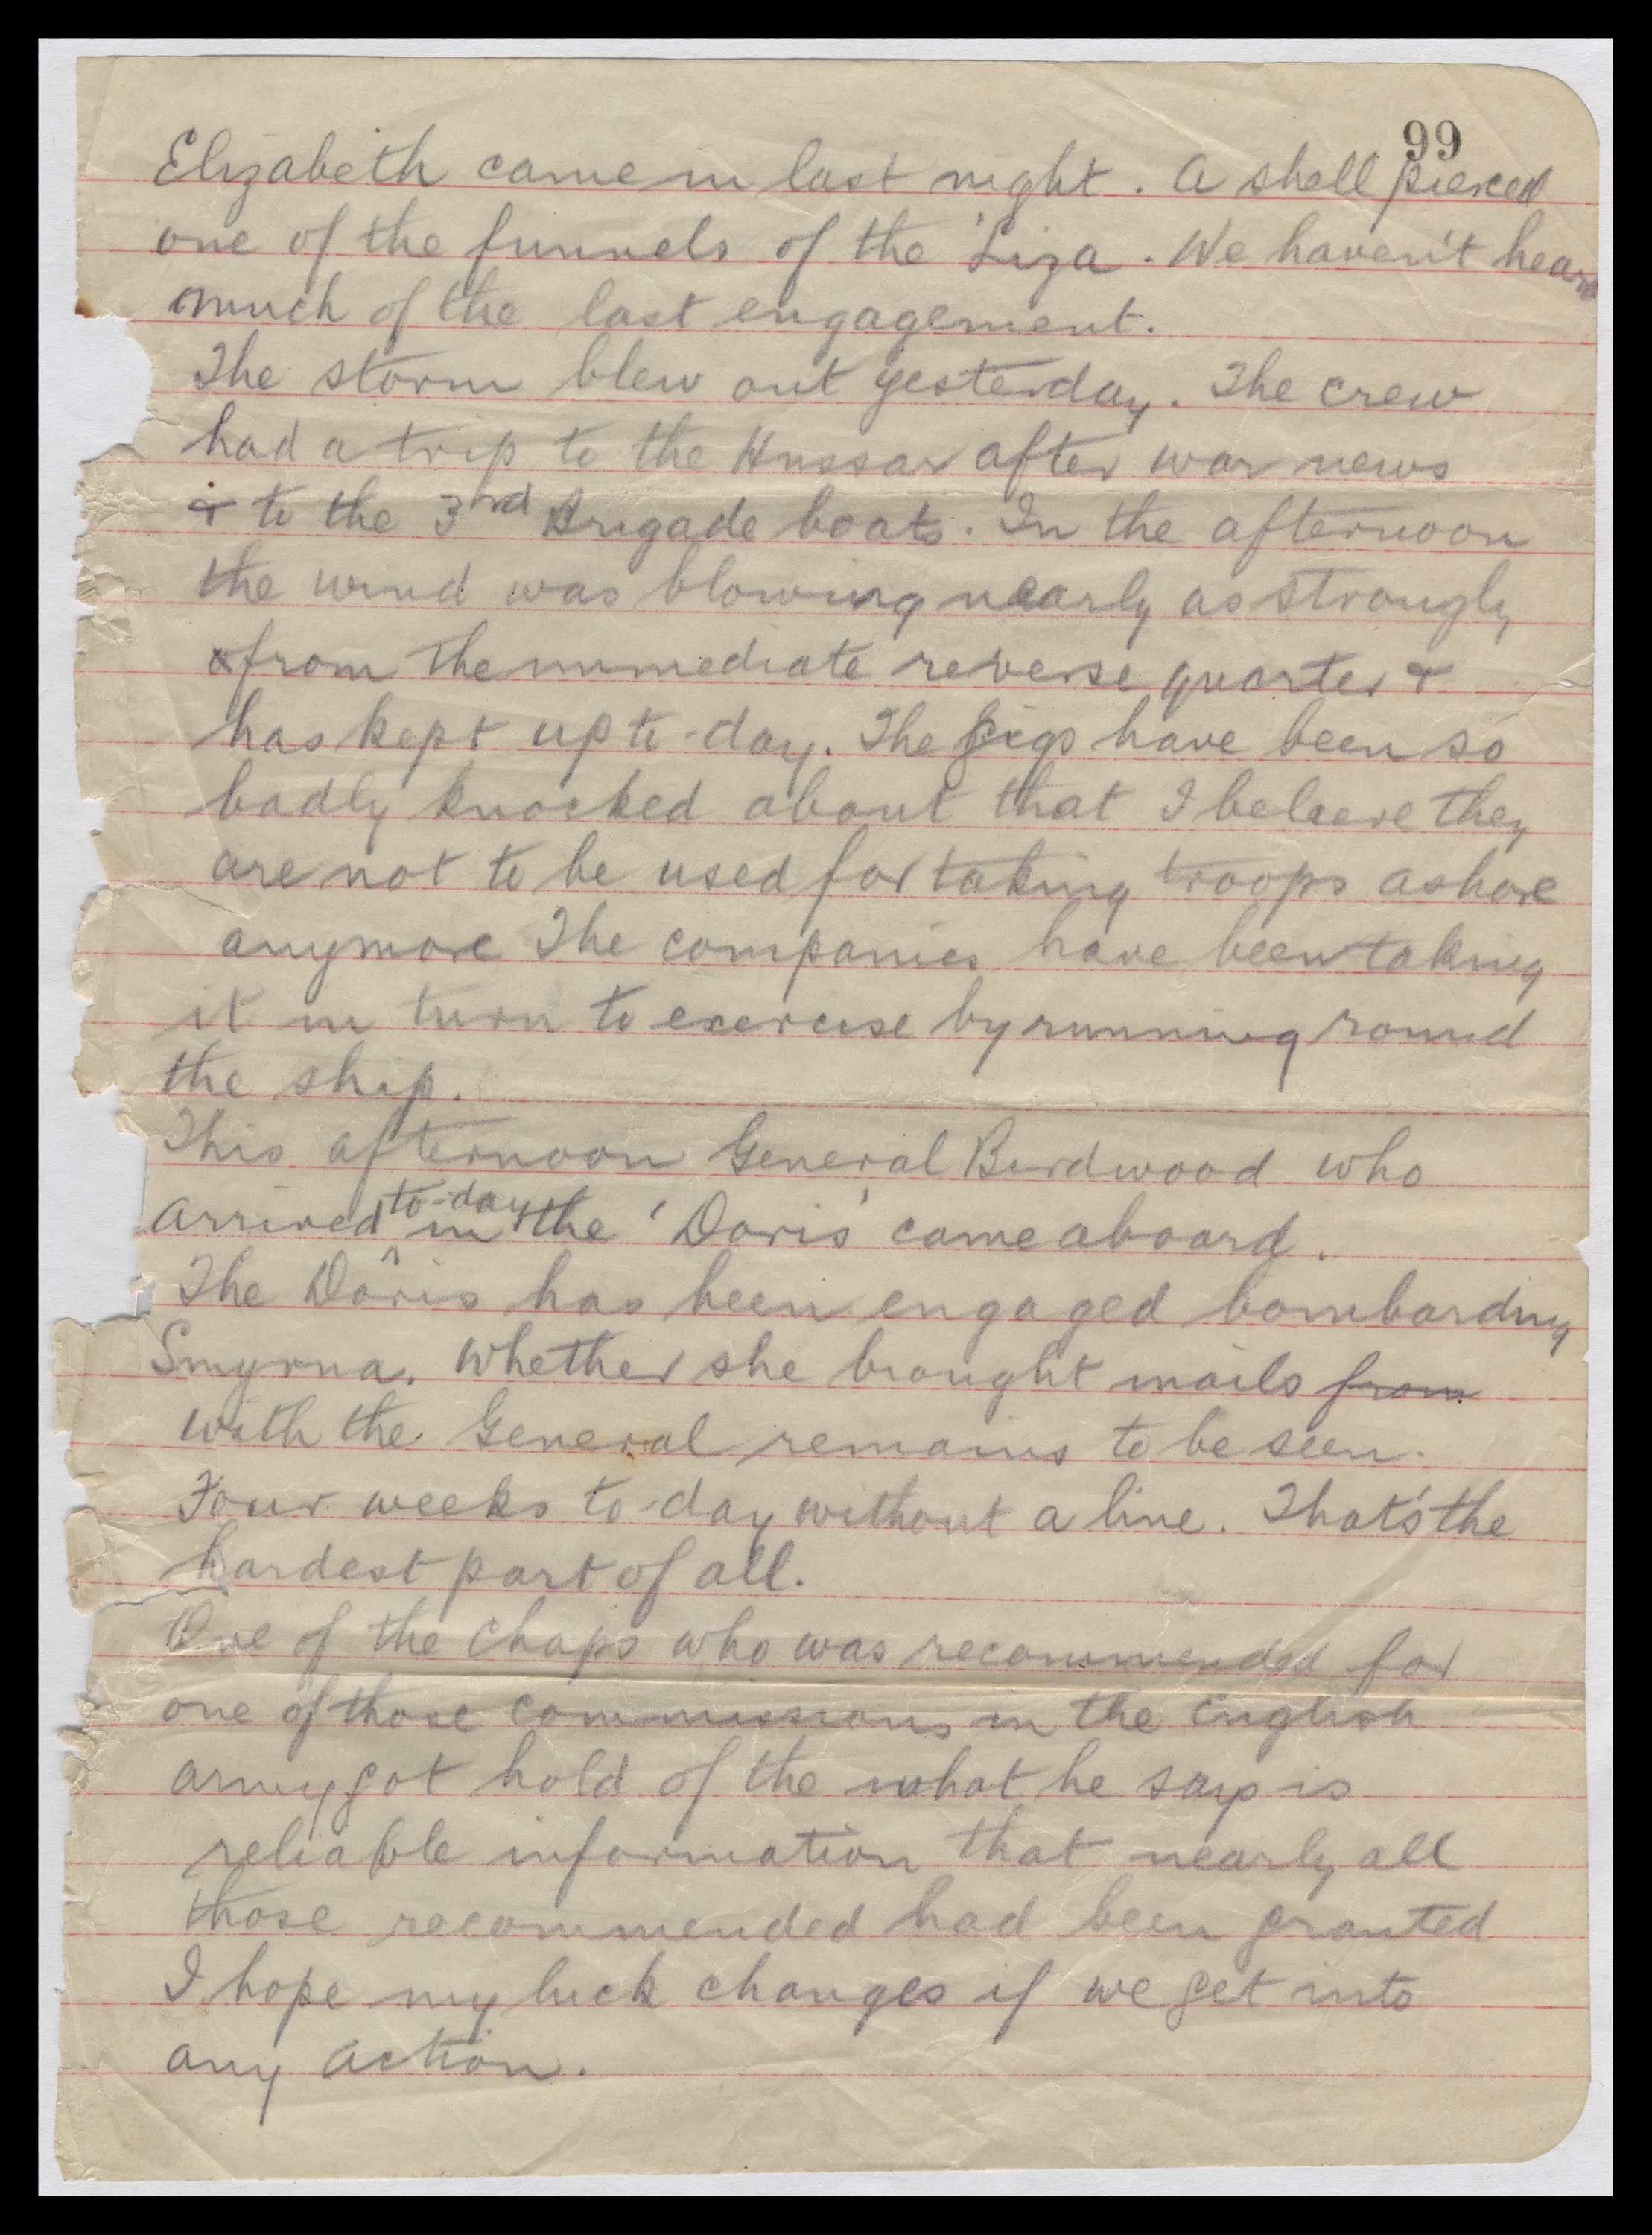 99
Elizabeth came in last night. A shell pierced
one of the funnels of the 'Liza. We haven't heard
much of the last engagement.
The storm blew out yesterday. The crew
had a trip to the Hussar after war news
& to the 3rd Brigade boats. In the afternoon
the wind was blowing nearly as strongly
from the immediate reverse quarter &
has kept up to-day. The gigs have been so
badly knocked about that I beleeve they
are not to be used for taking troops ashore
anymore The companies have been taking
it in turn to exercise by running round
the ship.
This afternoon General Birdwood who
arrived to-day in the 'Doris' came aboard.
The Doris has been engaged bombarding
Smyrna. Whether she brought mails from
with the General remains to be seen.
Four weeks to-day without a line. That's the
hardest part of all.
One of the chaps who was recommended for
one of those commissions in the English
army got hold of the what he says is
reliable information that nearly all
those recommended had been granted
I hope my luck changes if we get into
any action.